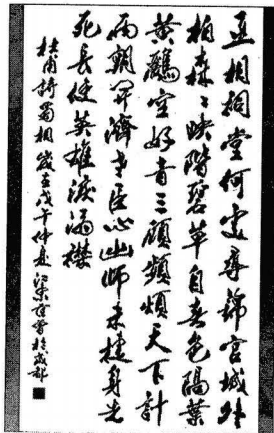 丞相祠堂何處尋錦官城外
柏森〻映階碧草自春色隔葉
黃鸝空好音三顧頻煩天下計
兩朝開濟老臣心出師未捷身先
死長使英雄淚滿襟
杜甫詩蜀相歲在戊午仲 書於成都